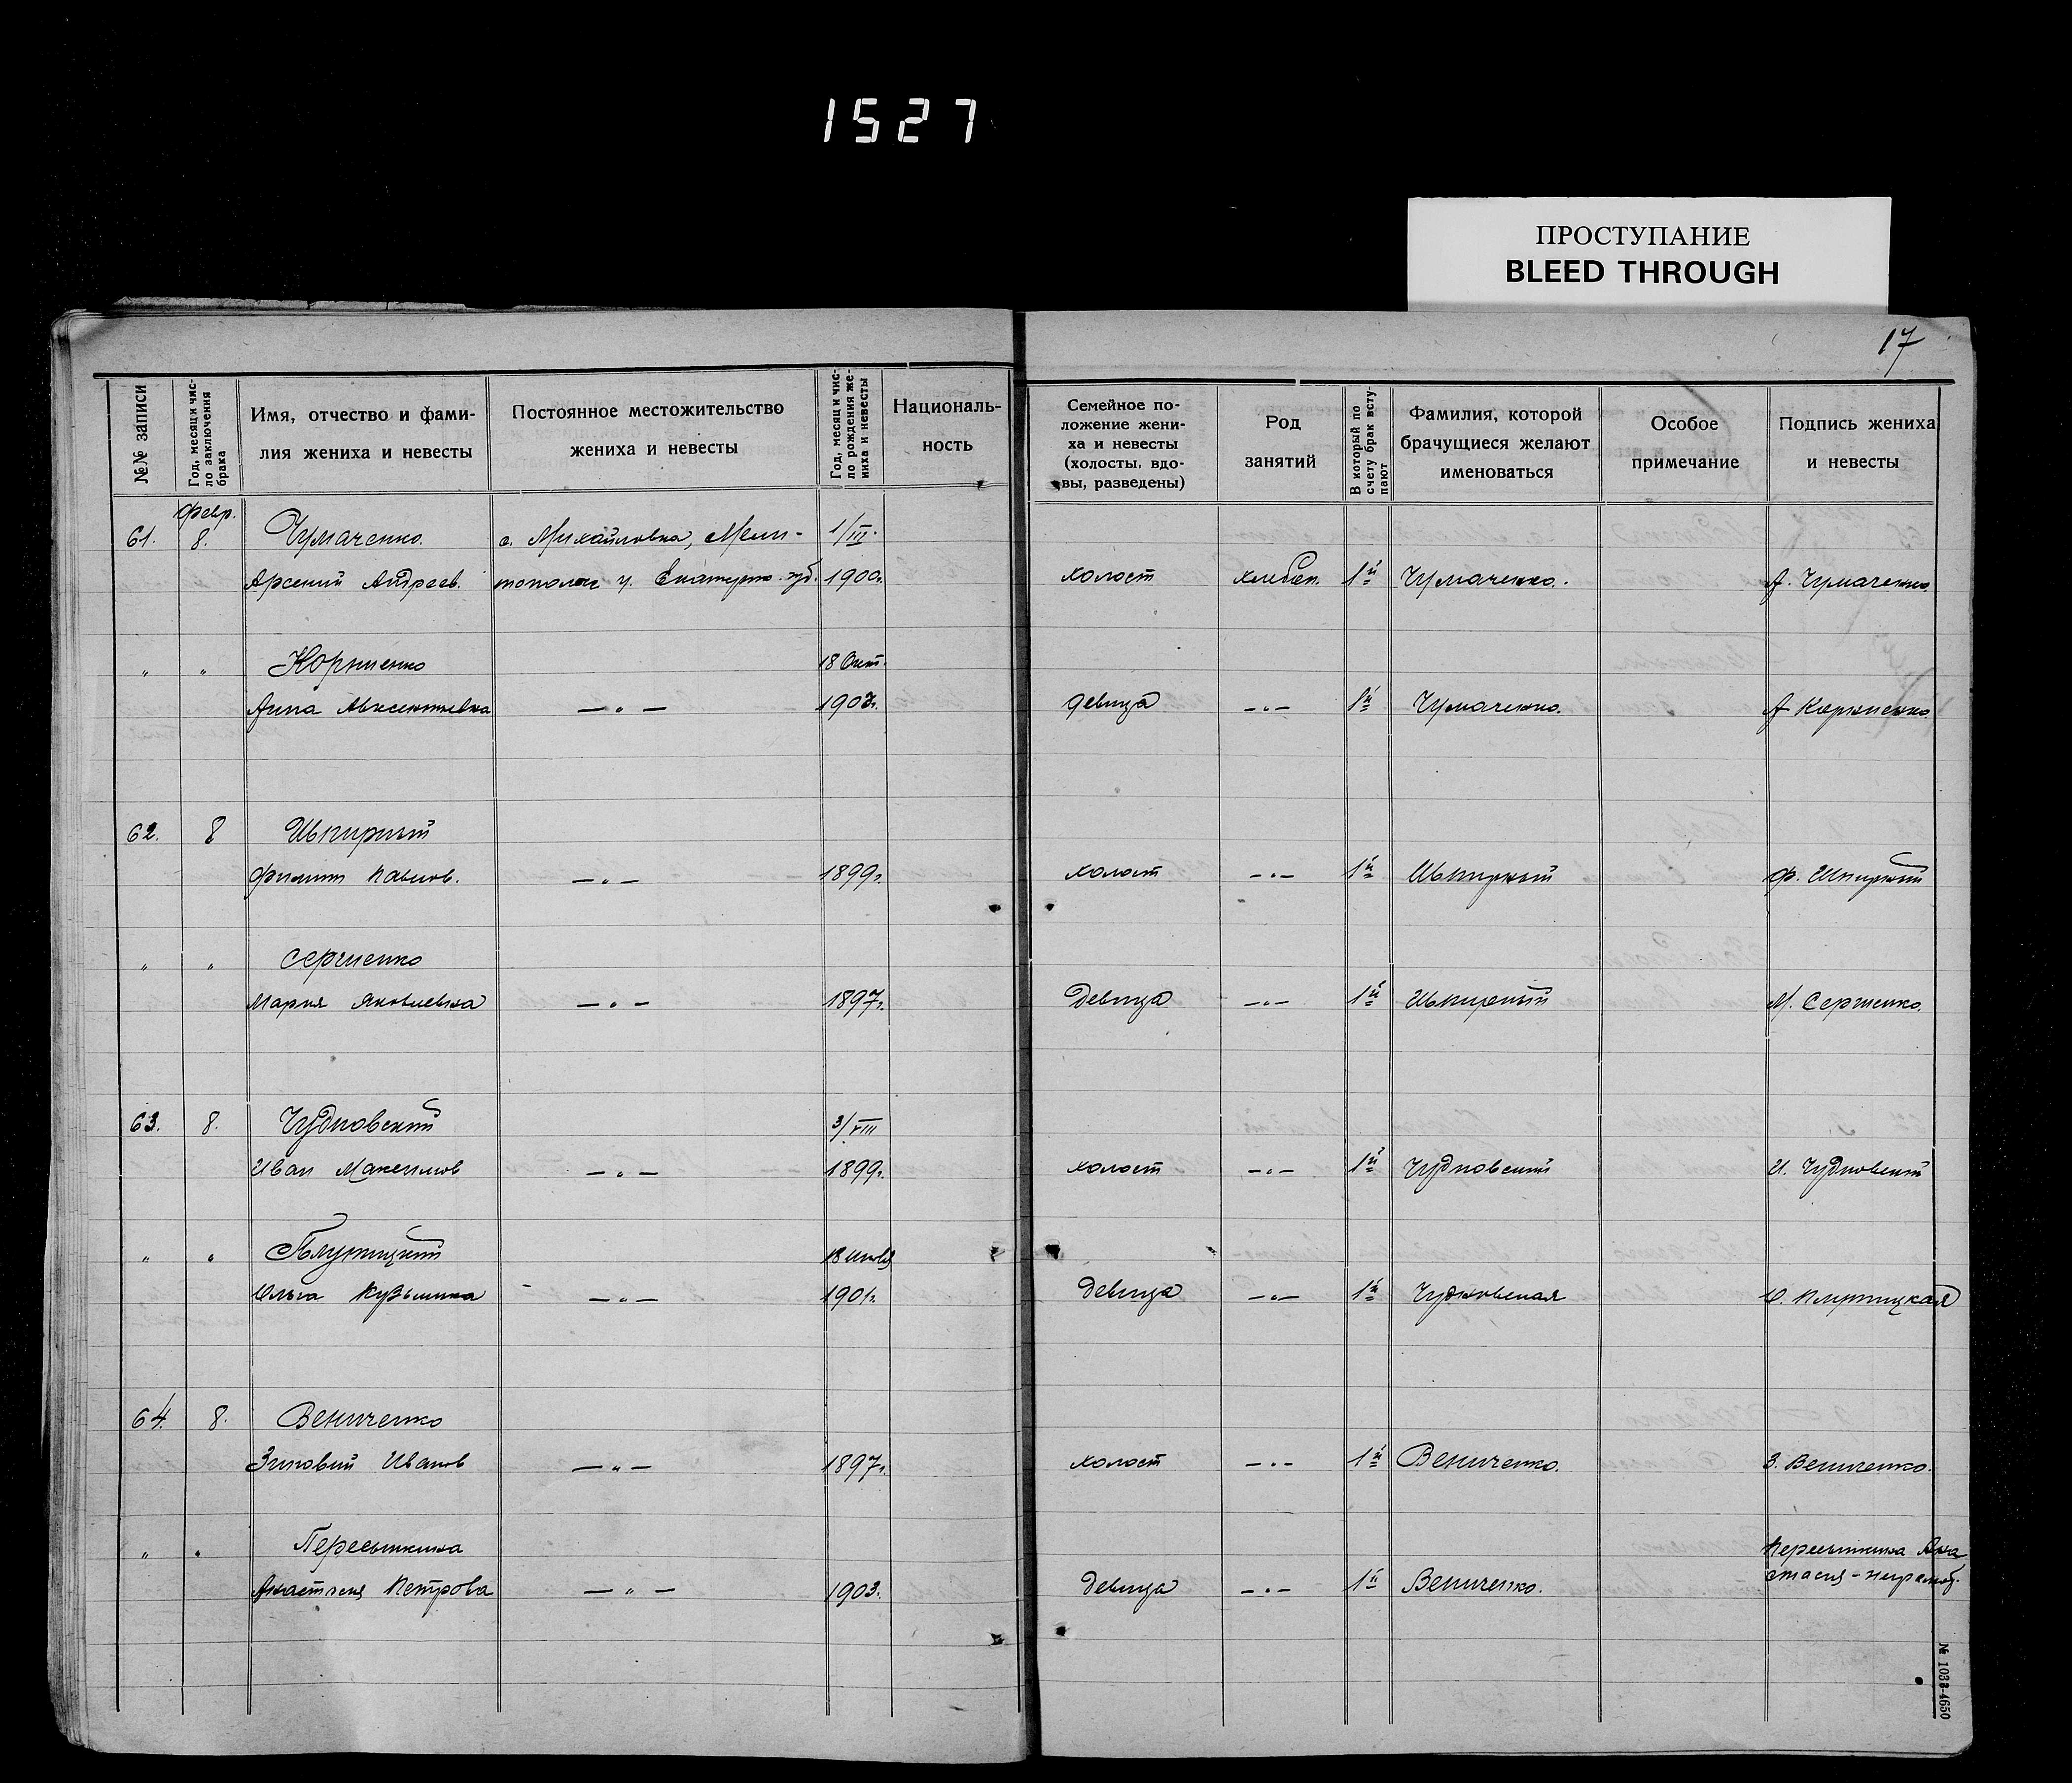 1527
ПРОСТУПАНИЕ
BLEED THROUGH
17
№№ записи
Год, месяц и чис-
ло заключения
брака
Имя, отчество и фами-
лия жениха и невесты
Постоянное местожительство
жениха и невесты
Год, месяц и чис-
ло рождения же-
ниха и невесты
Националь-
ность
Семейное по-
ложение жени-
ха и невесты
(холосты, вдо-
вы, разведены)
Род
занятий
В который по
счету брак всту-
пают
Фамилия, которой
брачущиеся желают
именоваться
Особое
примечание
Подпись жениха
и невесты
февр.
61. 8. Чумаченко. с. Михайловка, Мели- 1/III.
Арсений Андреев. топольск у. Екатерин. губ. 1900г. холост хлебоп. 1й Чумаченко. А. Чумаченко
" " Корниенко 18 Окт.
Анна Авксентьевна — " — 1902г. девица — " — 1й Чумаченко. А Корниенко
62. 8 Шкирный
Филипп Павлов. — " — 1899г. холост — " — 1й Шкирный Ф. Шкирный
" " Сергиенко
Мария Яковлевна — " — 1897г. Девица — " — 1й Шкирный М. Сергиенко.
63. 8. Чудновский 3/VIII
Иван Максимов — " — 1899г. холост — " — 1й Чудновский И. Чудновский
" " 18
Ольга Кузьмина — " — 1901г. девица — " — 1й Чудновская О.
64. 8. Вениченко
Зиновий Иванов — " — 1897г. холост — " — 1й Вениченко. З. Вениченко.
" " Пересыпкина
Анастасия Петрова — " — 1903. девица — " — 1й Вениченко. Пересыпкина Ана
стасия - неграмот.
№ 1038-4650